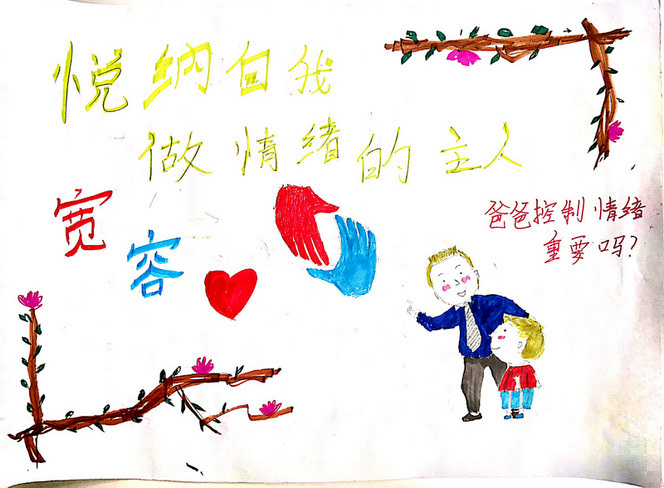 悦纳自我
做情绪的主人
宽容
爸爸控制情绪
重要吗?